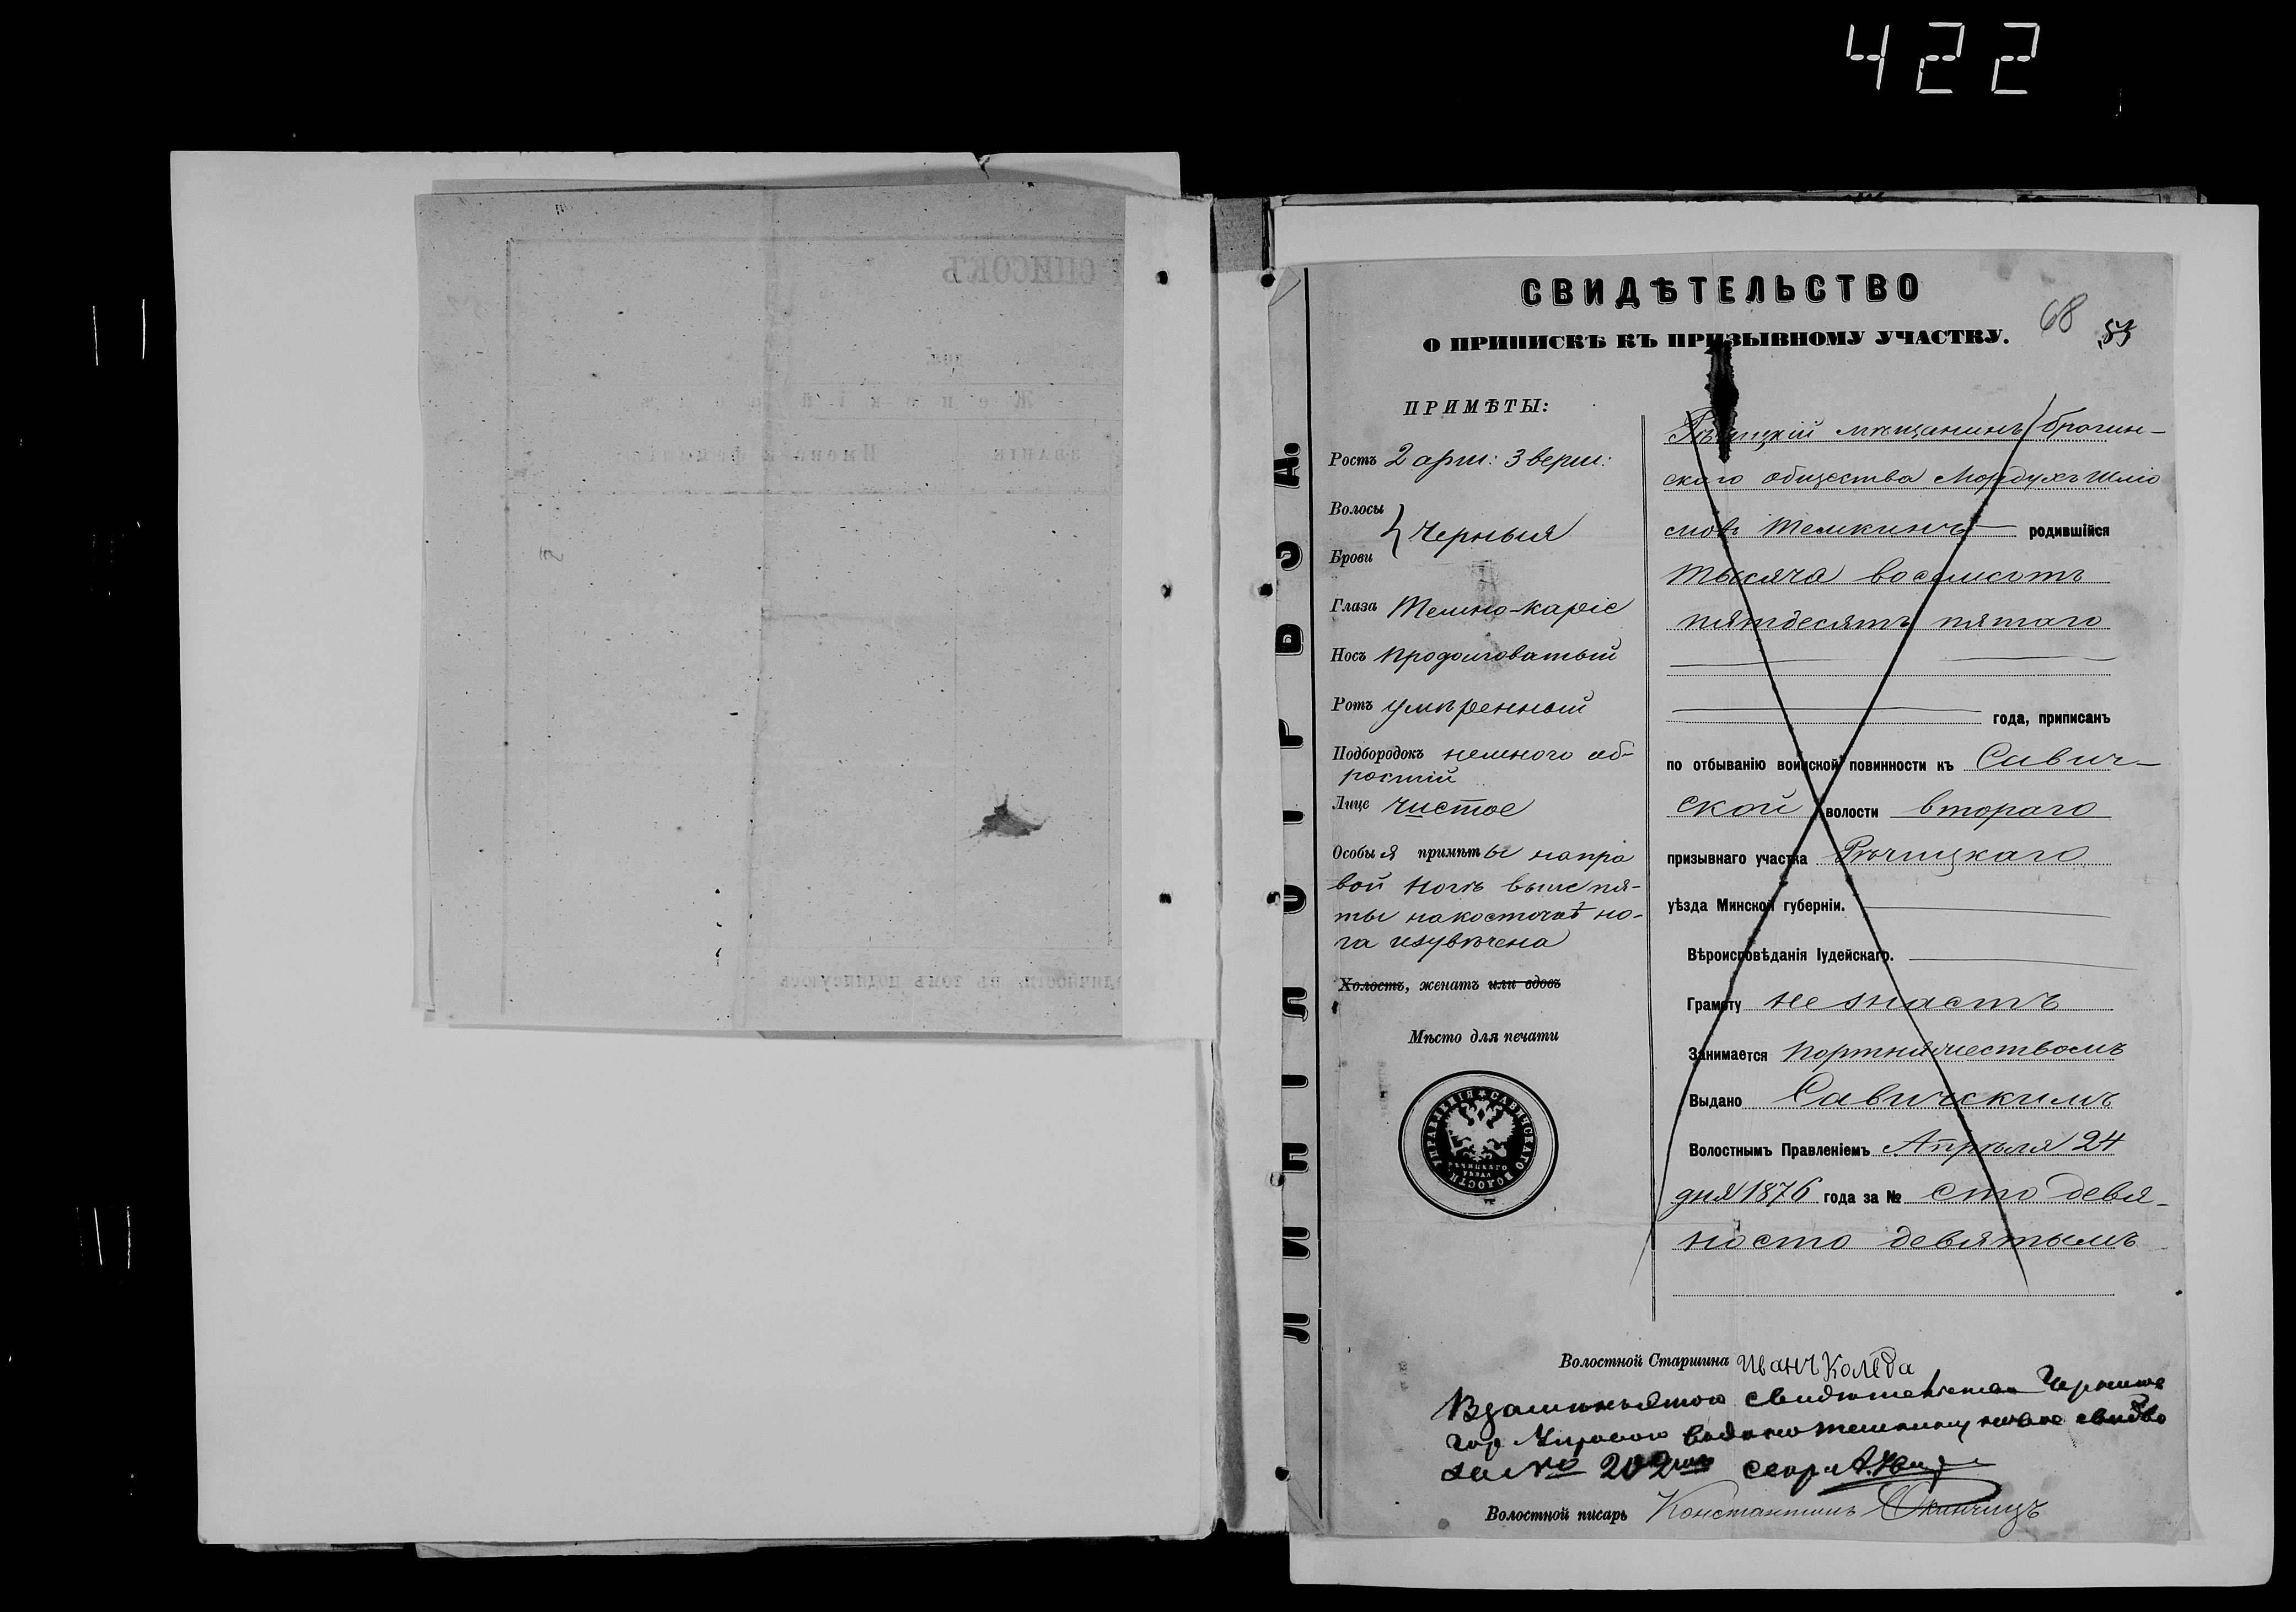 422
СВИДѢТЕЛЬСТВО
О ПРИПИСКѢ КЪ ПРИЗЫВНОМУ УЧАСТКУ.
68
53
ПРИМѢТЫ:
Ростъ 2 арш: 3 верш:
Волосы
Брови
Черныя
Глаза Темно-каріе
Носъ продолговатый
Ротъ умѣренный
Подбородокъ немного об-
росшій
Лице чистое
Особыя примѣты на пра
вой ногѣ выше пя-
ты на косточкѣ но-
га изувѣчена
Холостъ, женатъ или вдовъ
Мѣсто для печати
САВИЧСКАГО ВОЛОСТН УПРАВЛЕНІЯ
РѢЧИЦКАГО
УѢЗДА
Рѣчицкій мѣщанинъ брагин-
скаго общества Мордухъ Шліо
мовъ Темкинъ родившійся
тысяча восемьсотъ
пятдесятъ пятаго
года, приписанъ
по отбыванію воинской повинности къ Савич-
ской волости втораго
призывнаго участка Рѣчицкаго
уѣзда Минской губерніи.
Вѣроисповѣданія Іудейскаго.
Грамоту не знаетъ
Занимается портняжествомъ
Выдано Савичскимъ
Волостнымъ Правленіемъ Апрѣля 24
дня 1876 года за № сто девя-
носто девятымъ
Волостной Старшина Иванъ Коледа
Взаменъ этого свидѣтельства
гор выдано Темкину новое свидво
за № 202
Волостной писарь Константинъ
СПИСОКЪ